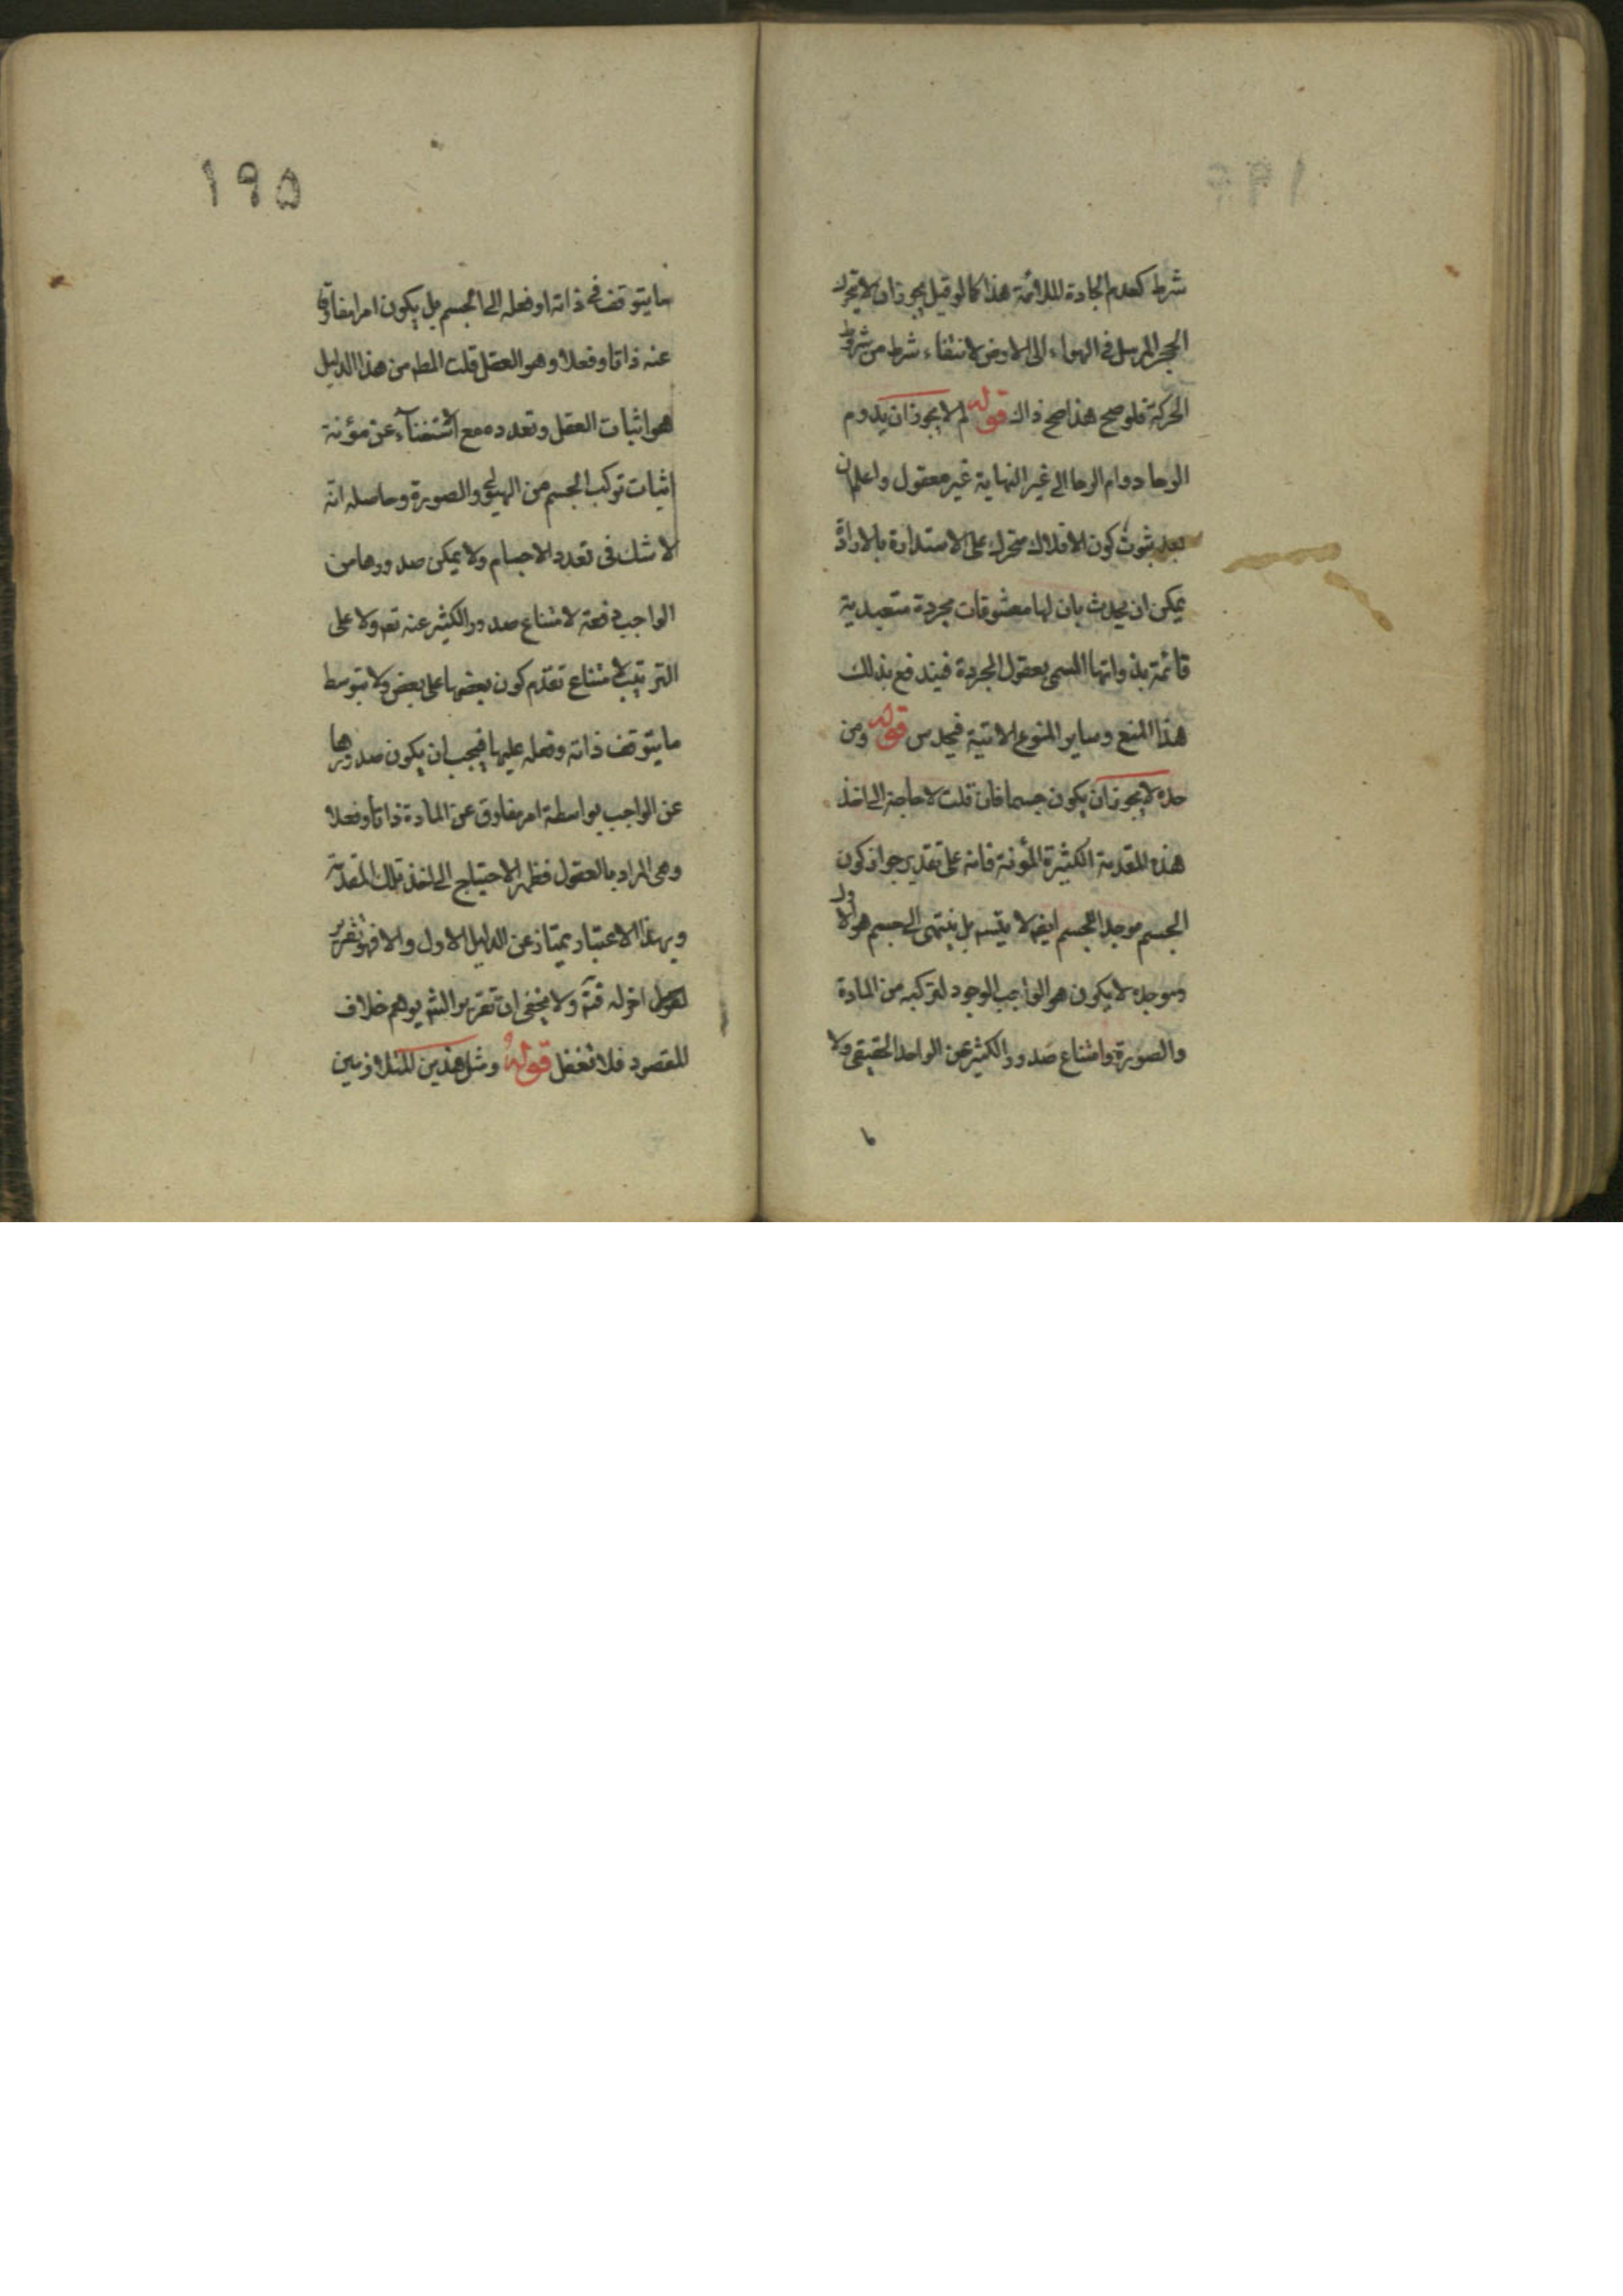 شرط كعدم الجادة الملائمة هذا كما لو قيل يجوز ان لا يتحرك
الحجر المرسل في الهواء الى الارض لانتفاء شرط من شروط
الحركة فلو صح هذا صح ذاك قوله لم لا يجوز ان يدوم
الرجا دوام الرجا الى غير النهاية غير معقول واعلم ان
بعد ثبوت كون الافلاك متحرك على الاستدارة بالارادة
يمكن ان يحدث بان لها معشوقات مجردة متعددية
قائمة بذواتها المسمى بعقول المجردة فيندفع بذلك
هذا المنع وساير المنوع الاتية فيحدس قوله ومن
حده لا يجوز ان يكون جسما فان قلت لا حاجة الى اخذ
هذه المقدمة الكثيرة المؤنة فانه على تقدير جواز كون
الجسم موجد الجسم ايضا لا يتسم بل ينتهى الى جسم هو الاول
وموجده لا يكون هو الواجب الوجود لتركبه من المادة
والصورة وامتناع صدور الكثير عن الواحد الحقيقى ولا
١٩٥
ما يتوقف في ذاته او فعله الى الجسم بل يكون امرا مفارقا
عنه ذاتا وفعلا وهو العقل قلت المط من هذا الدليل
هو اثبات العقل وتعدده مع استغناء عن مؤنة
اثبات تركب الجسم من الهيولى والصورة وحاصله انه
لا شك فى تعدد الاجسام ولا يمكن صدورها من
الواجب دفعة لامتناع صدور الكثير عنه تع ولا على
الترتيب لامتناع تقدم كون بعضها على بعض ولا بتوسط
ما يتوقف ذاته وفعله عليها فيجب ان يكون صدورها
عن الواجب بواسطة امر مفارق عن المادة ذاتا وفعلا
وهى المراد بالعقول فظهر الاحتياج الى اخذ تلك المقدمة
وبهذا الاعتبار يمتاز عن الدليل الاول والا فهو تقرير
اخر له فتم ولا يخفى ان تقرير الشم يوهم خلاف
المقصود فلا تغفل قوله ومثل هذين المتلازمين